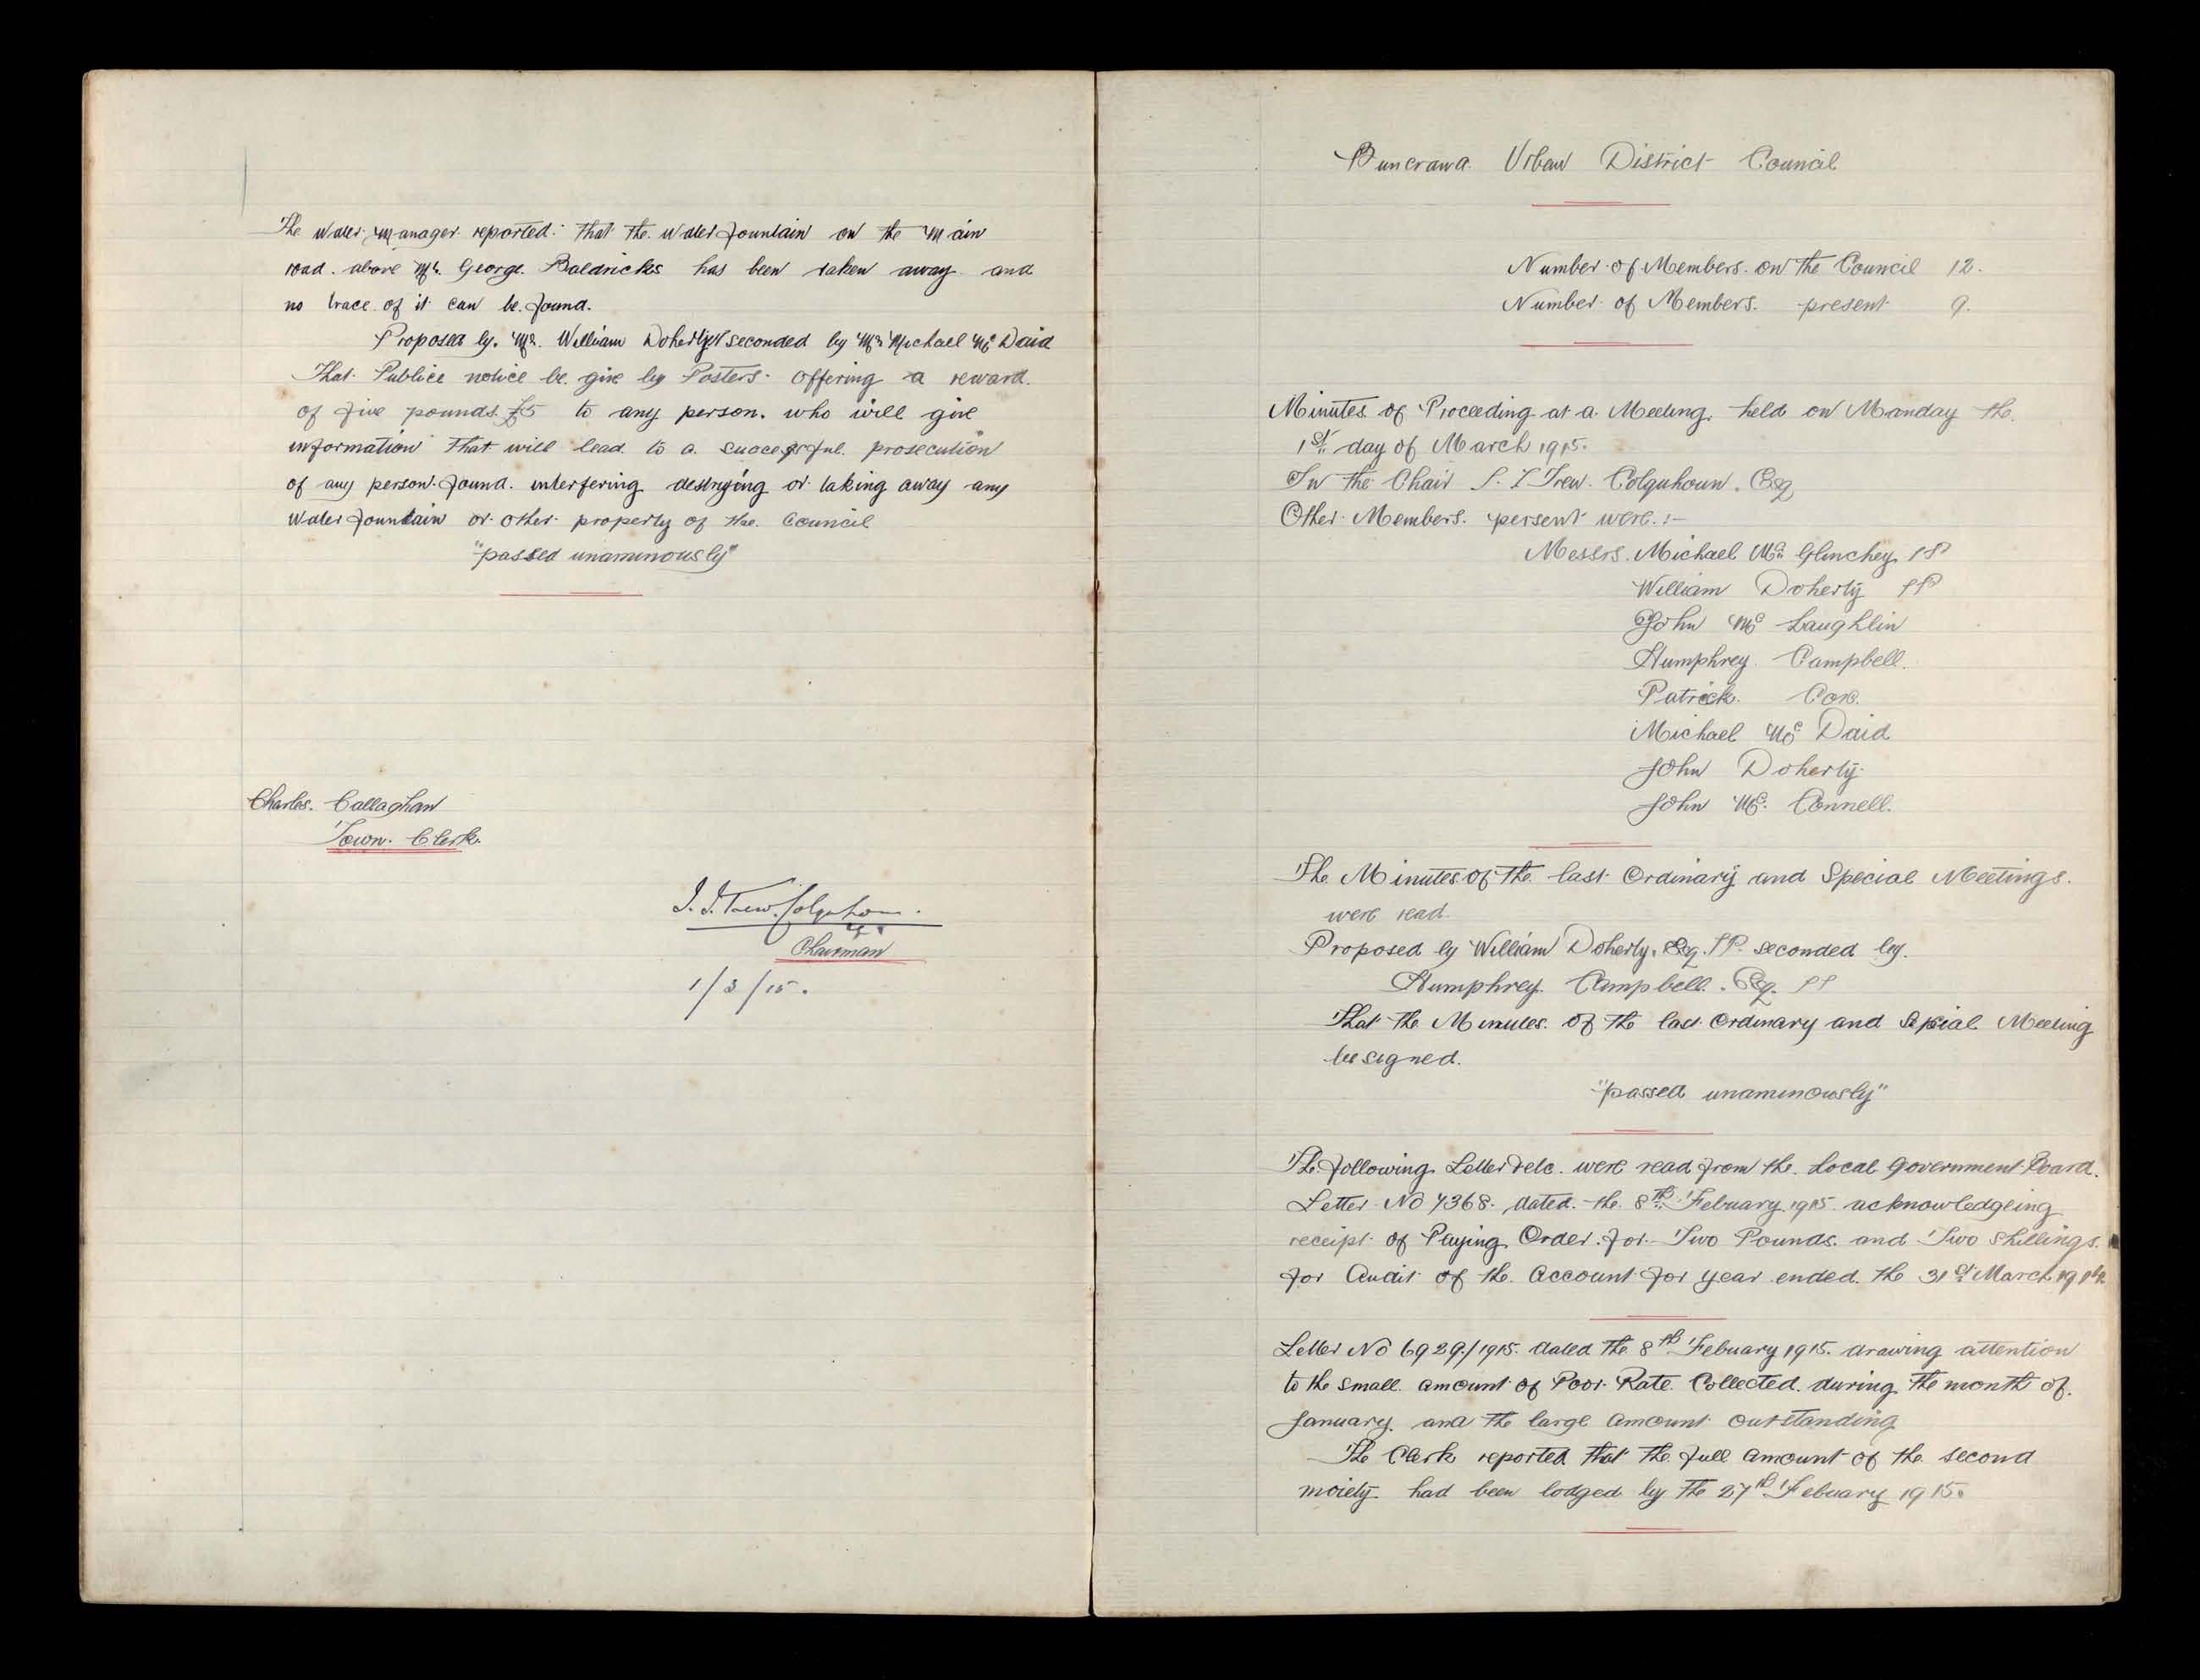 The Water Manager reported: that the Water fountain on the Main
road above Mr. George Baldricks has been taken away and
no trace of it can be found.
Proposed by Mr. William Doherty seconded by Mr Michael Mc Daid
That Publice notice be give by Posters offering a reward
of five pounds £5 to any person. who will give
information that will lead to a sucessful prosecution
of any person found interfering destrying or taking away any
Water fountain or other property of the Council
"passed unaminously"
Charles. Callaghan
Town. Clerk.
Trew Colquhoun.
Chairman
1/3/15.
Buncrana Urban District Council
Number of Members on the Council 12.
Number of Members. present 9.
Minutes of Proceeding at a Meeting. held on Manday the
1st day of March 1915.
In the Chair Trew. Colquhoun. Esq
Other Members. persent were.:-
Messrs. Michael Mc Glinchey JP
William Doherty JP
John Mc Laughlin
Humphrey Campbell.
Patrick. Cox.
Michael Mc Daid
John Doherty
John Mc. Connell.
The Minutes of the last Ordinary and Special Meetings.
were read.
Proposed by William Doherty. Esq. JP. seconded by.
Humphrey. Campbell. Esq. JP
That the Minutes. of the last Ordinary and Special Meeting
be signed.
"passed unaminously"
The following Letter etc. were read from the Local Government Board.
Letter No 7368. dated. the 8th Febuary 1915 acknowledgeing
receipt of Paying Order for Two Pounds. and Two Shillings.
for Audit of the Account for year ended. the 31st March 1914
Letter No 6929/1915. dated the 8th Febuary 1915. drawing attention
to the small amount of Poor Rate Collected. during the month of.
January. and the large amount outstanding
The Clerk reported that the full amount of the second
moiety had been lodged by the 27th Febuary 1915.